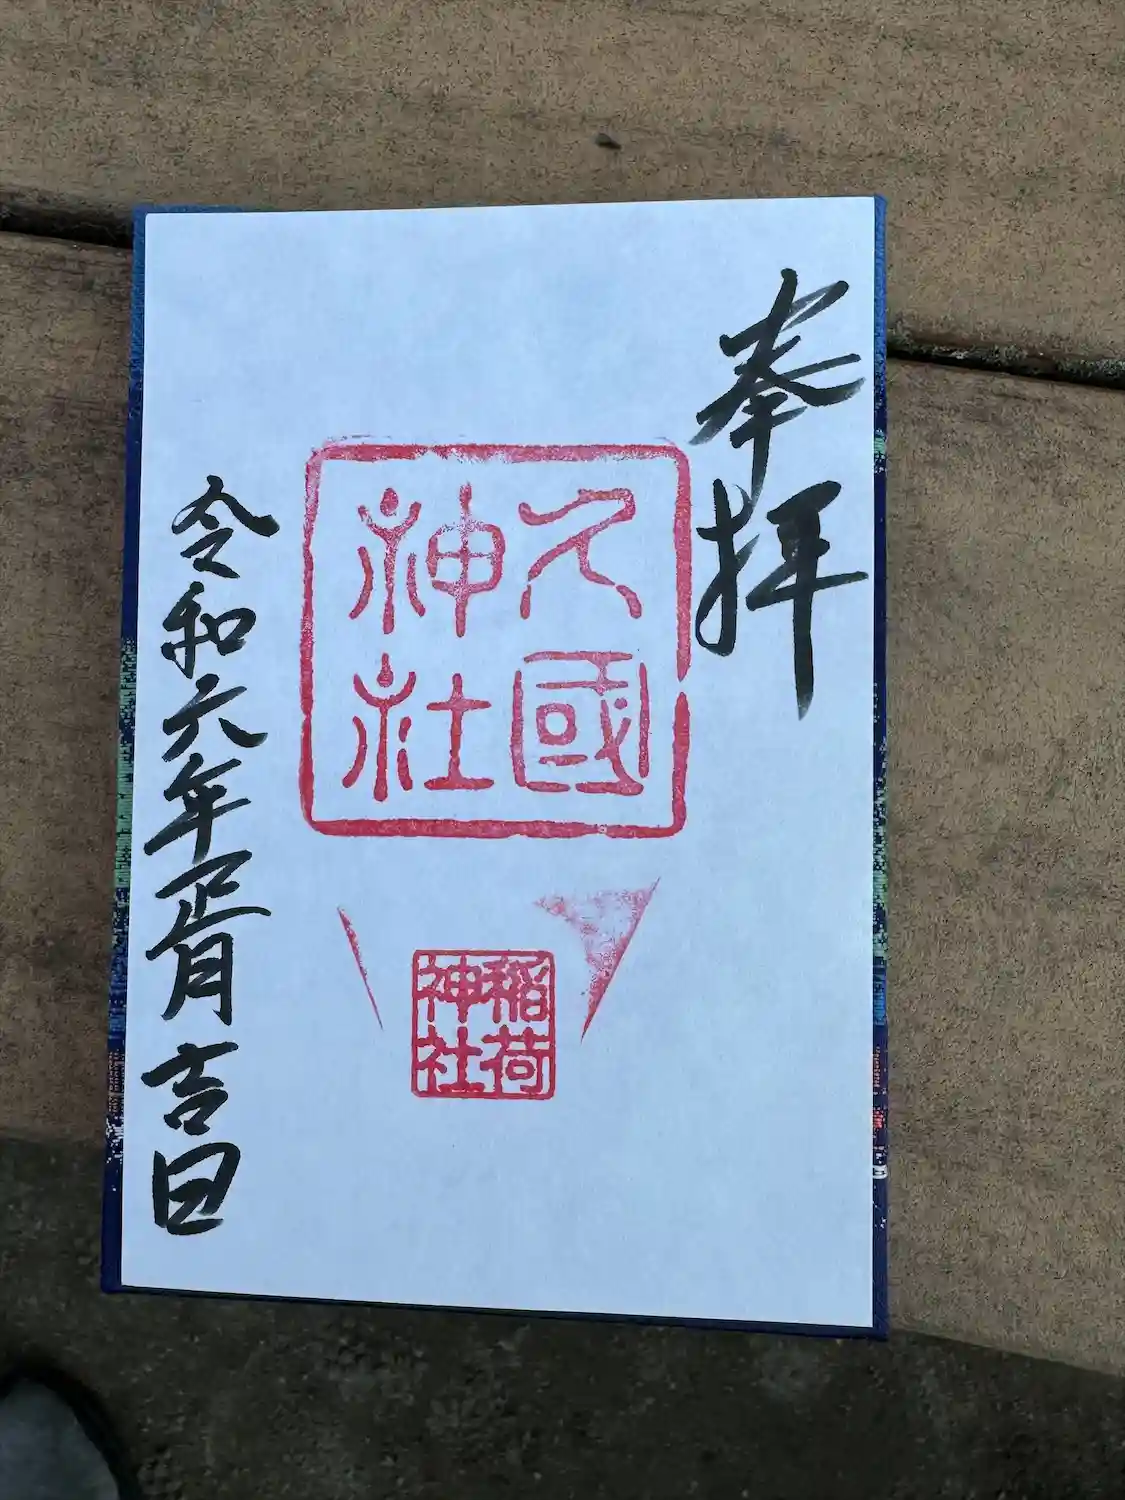 奉拝
久國
神社
稲荷
神社
令和六年正月吉日